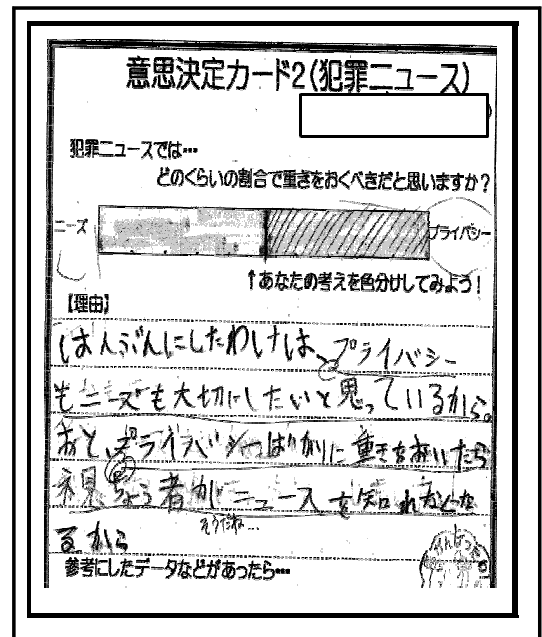 意思決定カード2(犯罪ニュース)
犯罪ニュースでは…
どのくらいの割合で重きをおくべきだと思いますか?
ニーズ
プライバシー
↑あなたの考えを色分けしてみよう!
【理由】
はんぶんにしたわけは、プライバシー
もニーズも大切にしたいと思っているから。
あと、プライバシーばかりに重きをおいたら
視ちょう者がニュースを知れなくな
そうだね…
るから
参考にしたデータなどがあったら…